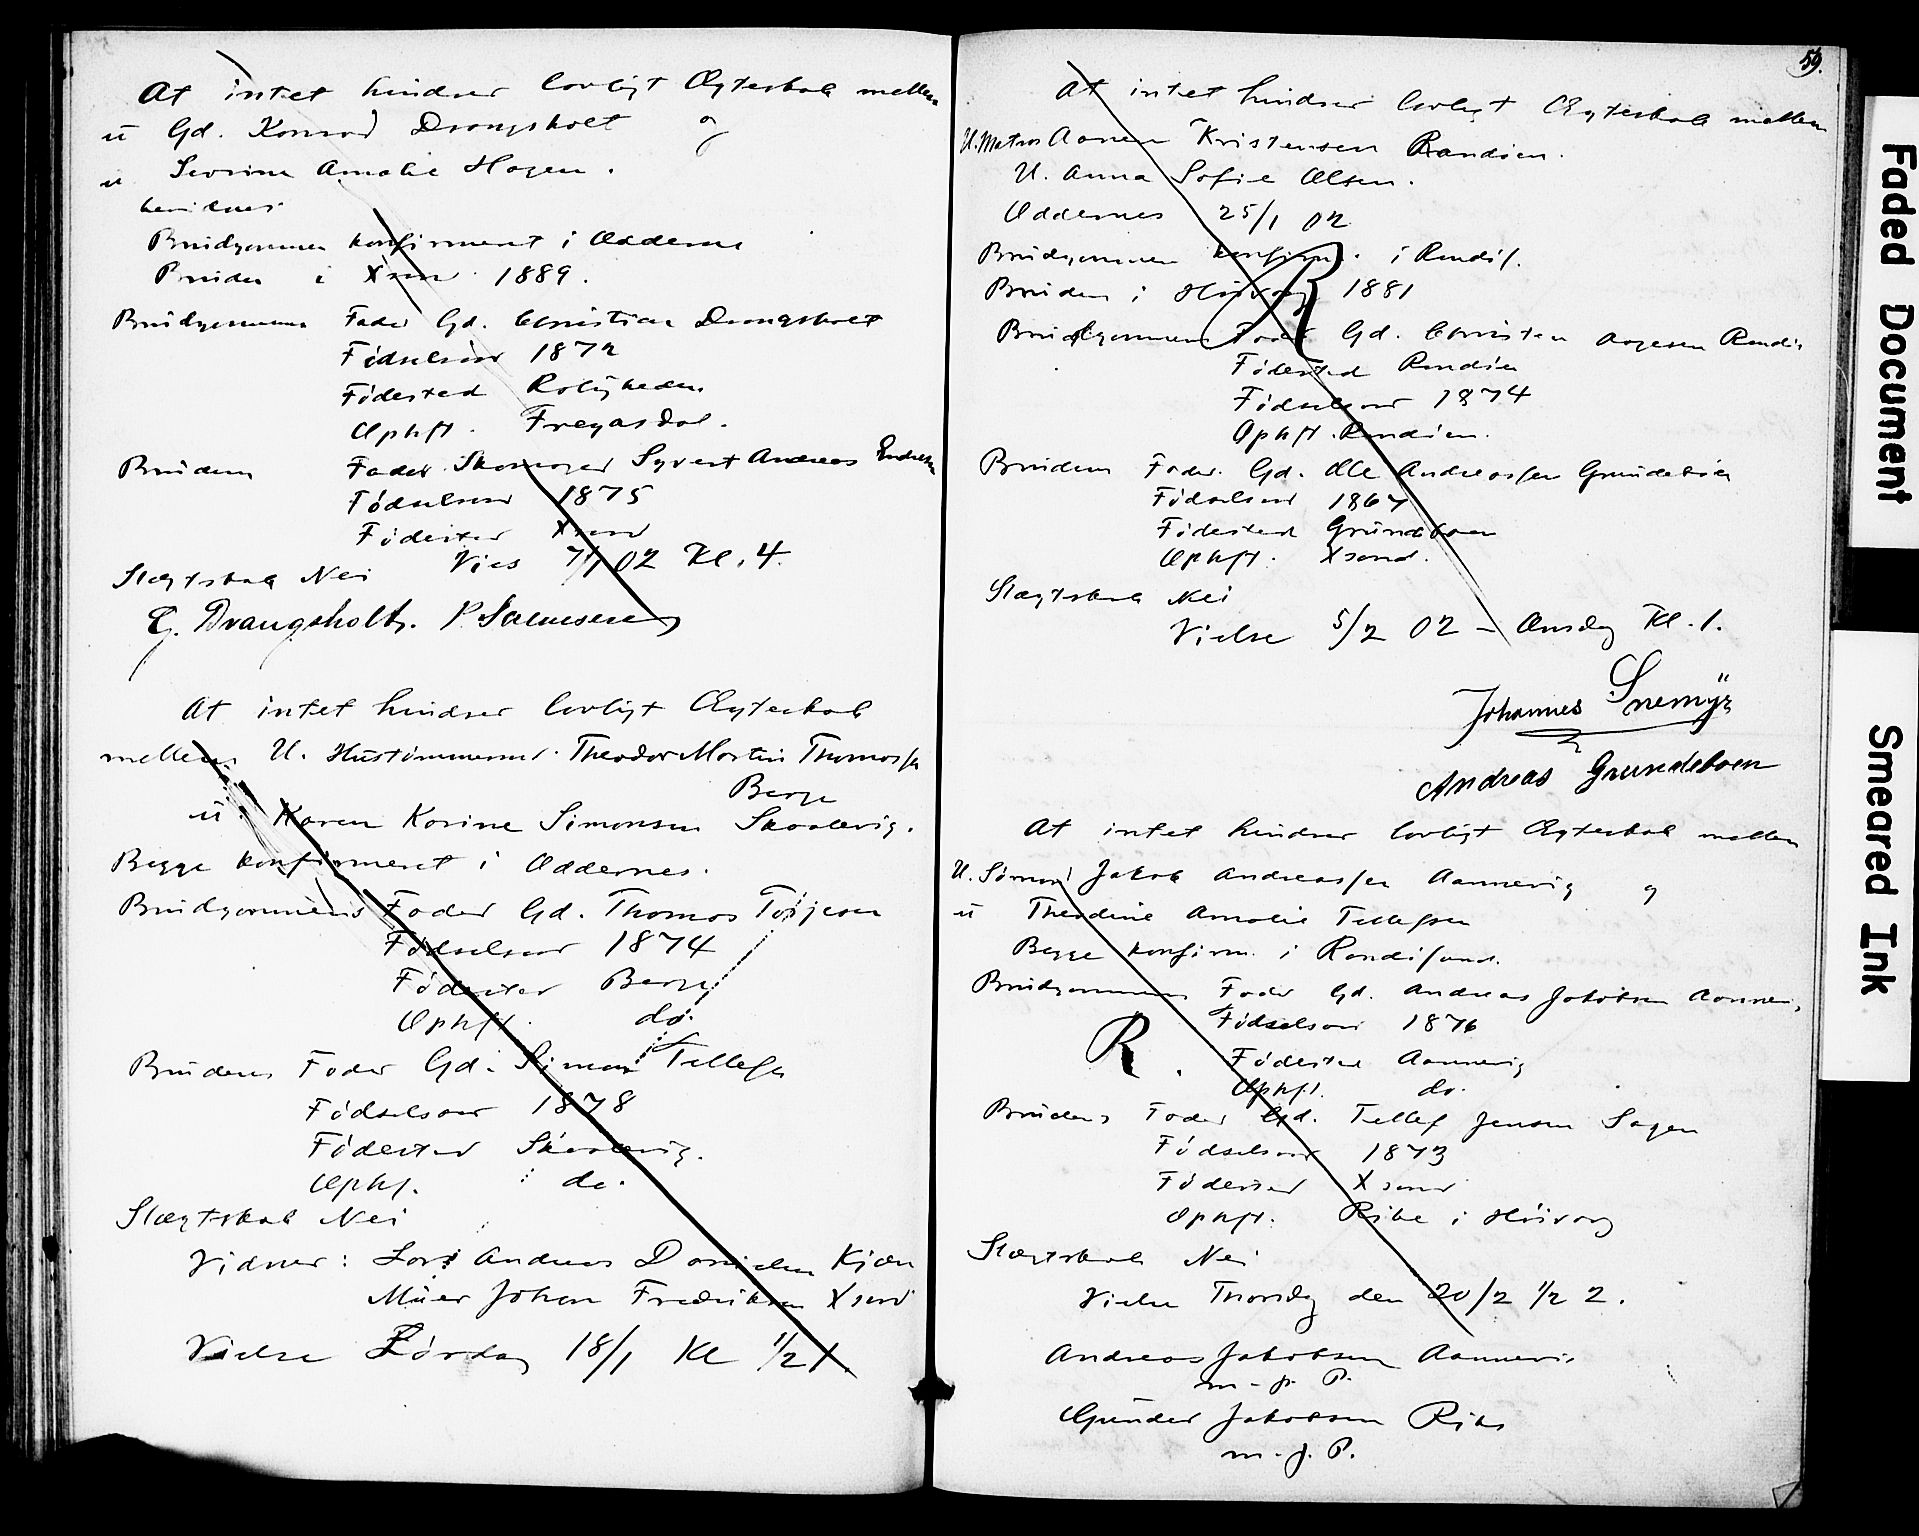 At intet hindrer lovligt Ægteskab mellem
u Gd. Konrad Drangsholt og
u Sevrine Amalie Hagen.
bevidnes
Brudgommen konfirmeret i Oddernes
Bruden i Xsand 1889.
Brudgommens Fader Gd. Christian Drangsholt
Fødselsaar 1872
Fødested Roligheden
Ophft. Fregasdal.
Brudens Fader Skomager Syvert Andreas
Fødselsaar 1875
Fødested Xsand
Vies 7/1 02 Kl. 4.
Slægtskab Nei
C. Drangsholt. P Salvesen
At intet hindrer lovligt Ægteskab
mellem U. Hustømmermd. Theodor Martin Thomassen
Berge
u. Karen Korine Simonsen Skaalevig.
Begge konfirmeret i Oddernes.
Brudgommens Fader Gd. Thomas Torjesen
Fødselsaar 1874
Fødested Berge
Ophft. do.
Brudens Fader Gd. Simon Tellefsen
Fødselsaar 1878
Fødested Skaalevig.
Ophf. do.
Slægtskab Nei
Vidner: Lars Andreas Danielsen Kjær
Murer Johan Fredriksen Xsand
Vielse Lørdag 18/1 Kl 1/2 1.
59.
At intet hindrer lovligt Ægteskab mellem
U. Matros Aanen Kristensen Randøen.
U. Anna Sofie Olsen.
Oddernes 25/1 02
Brudgommen konfirm. i Randøs.
Bruden i Høivaag 1881
R
Brudgommens Fader Gd. Christen Aagesen Randø
Fødested Randøen
Fødselsaar 1874
Ophft. Randøen.
Brudens Fader. Gd. Ole Andreassen Grundeboen
Fødselsaar 1867
Fødested Grundeboen
Ophft. Xsand.
Slægtskab Nei
Vielse 5/2 02 – Onsdag Kl. 1.
Johannes Snemyr
Andreas Grundeboen
At intet hindrer lovligt Ægteskab mellem
U. Sømand Jakob Andreassen Aannevig og
u Theodine Amalie Tellefsen
Begge konfirm. i Randøsund.
Brudgommens Fader Gd. Andreas Jakobsen Aannev.
Fødselsaar 1876
R. Fødested Aannevig
Ophft. do.
Brudens Fader Gd. Tellef Jensen Sagen
Fødselsaar 1873
Fødested Xsand
Ophft. Ribe i Høivaag
Slægtskab Nei
Vielse Thorsdag den 20/2 1/2 2.
Andreas Jakobsen Aannevig
m. p. P.
Gunder Jakobsen Ribe
m. p. P.
Faded Document
Smeared Ink